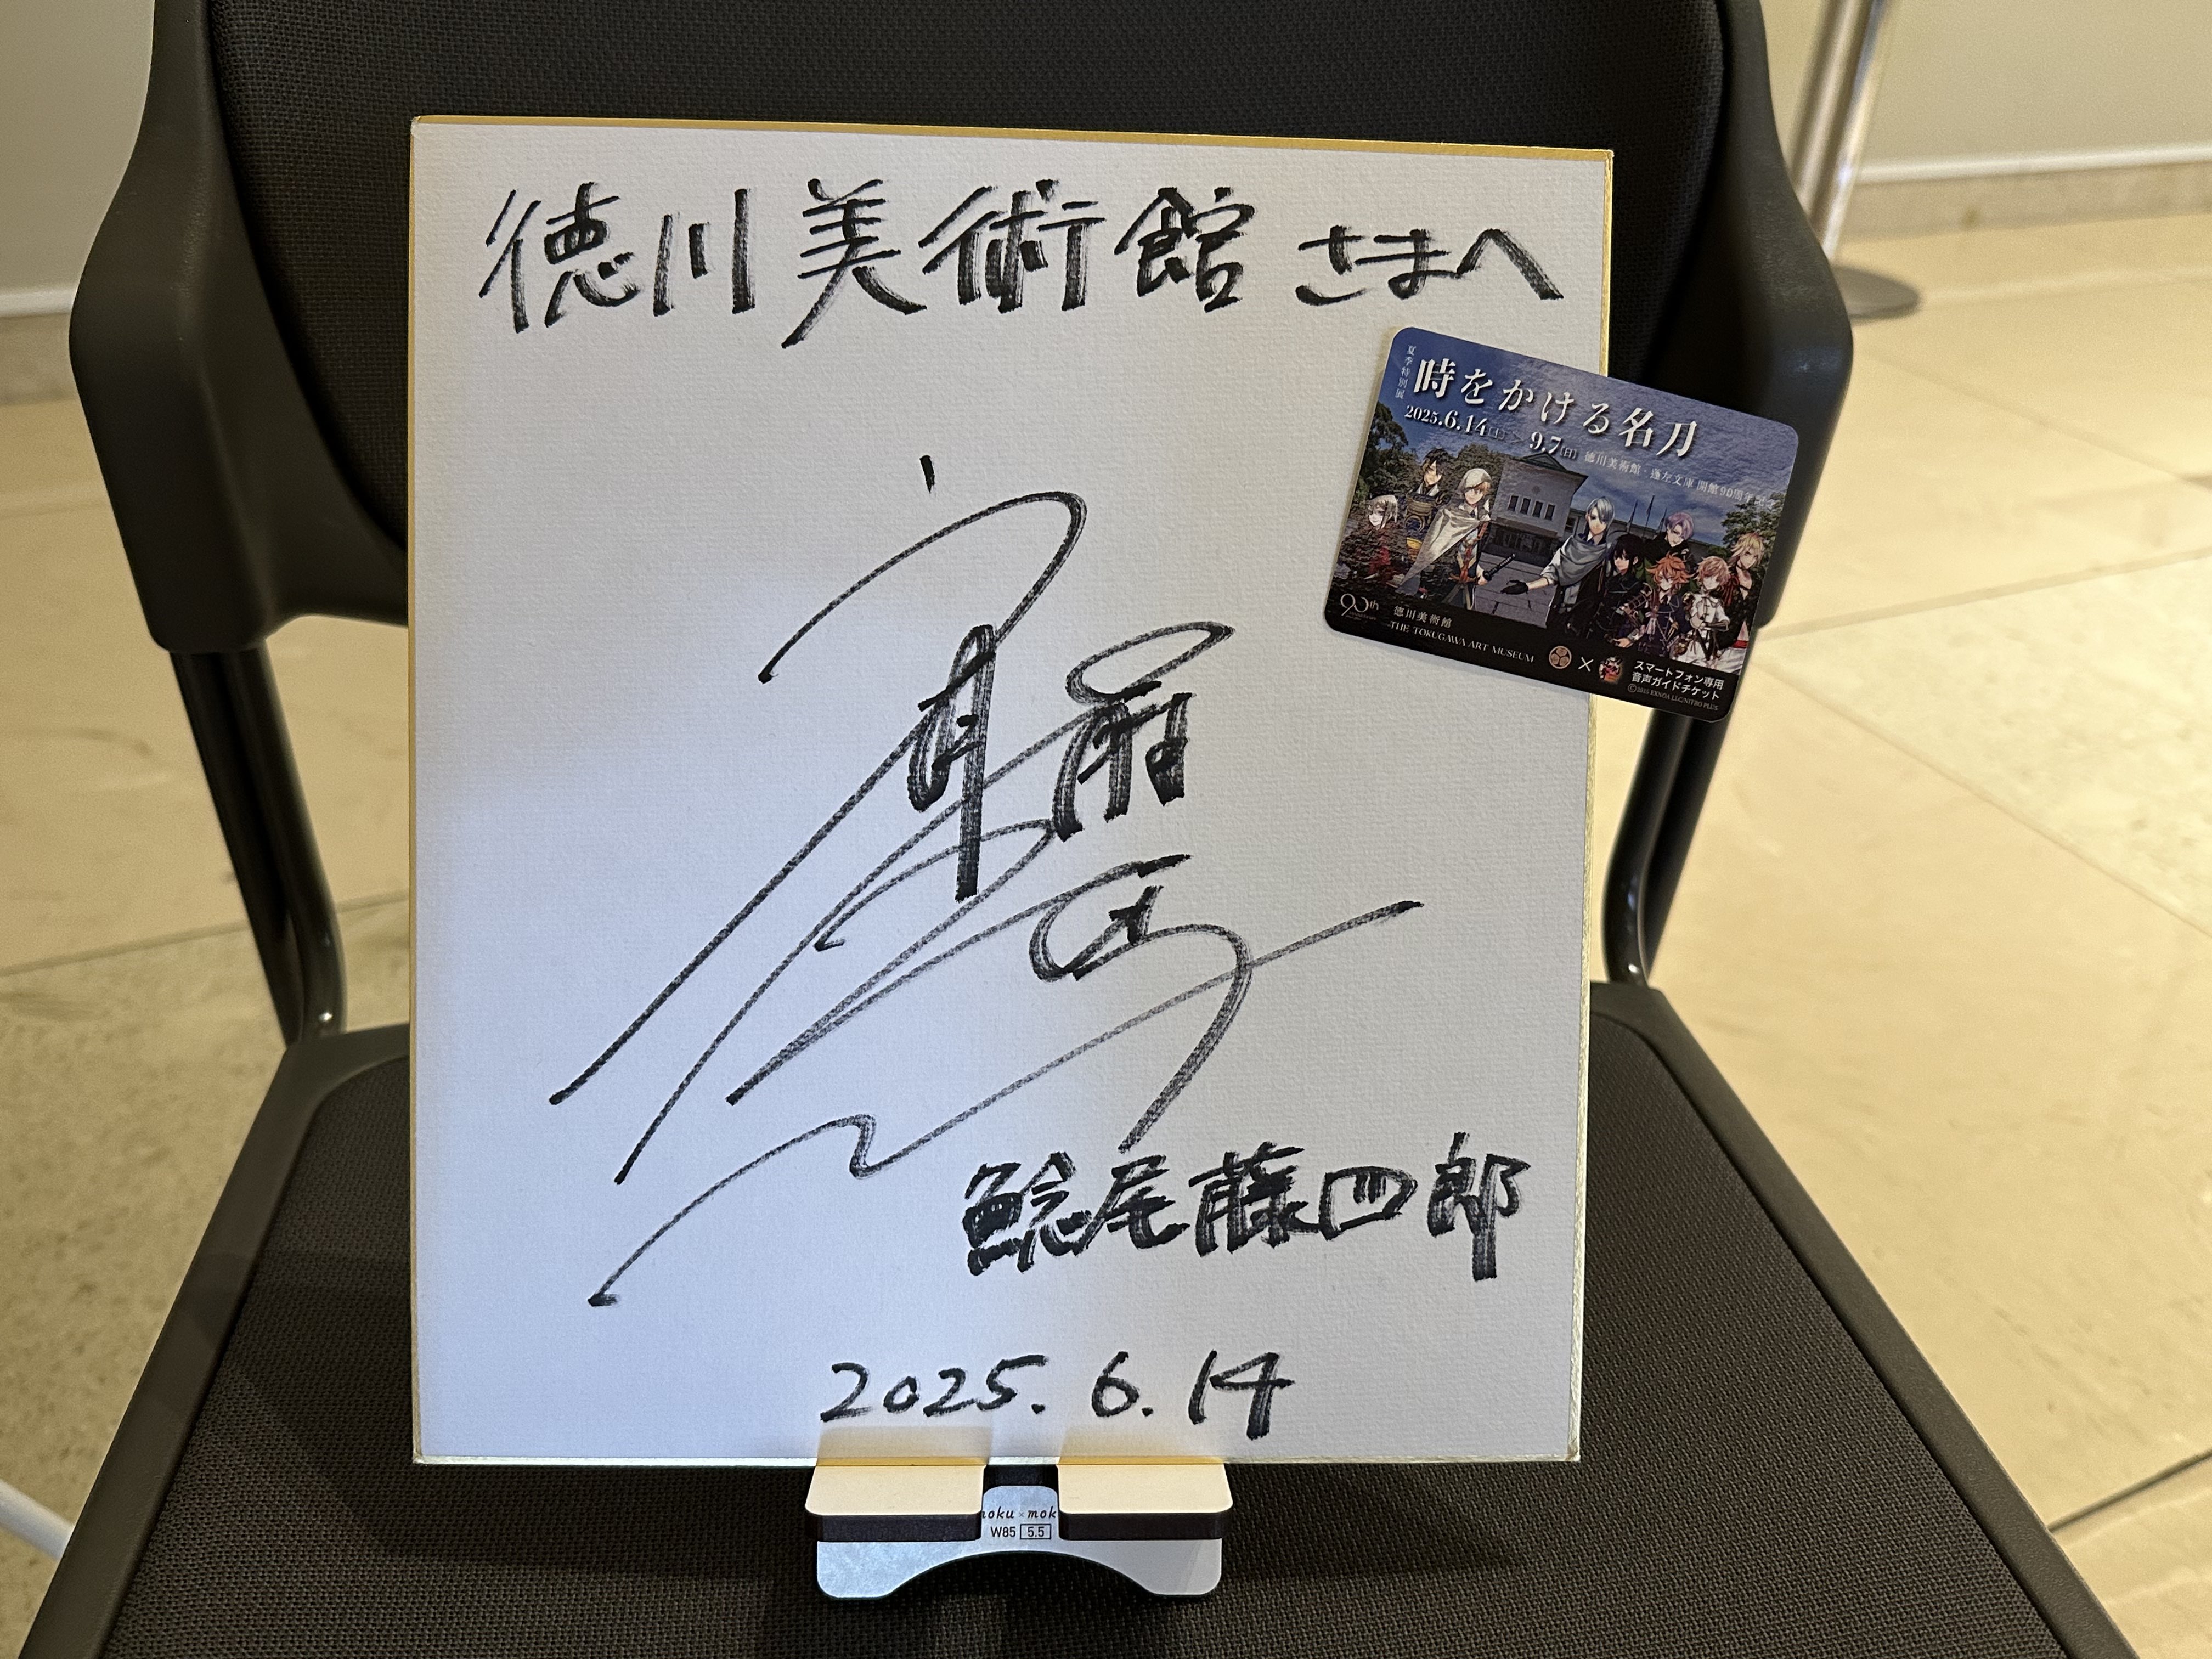 徳川美術館さまへ
夏季特別展
時をかける名刀
2025.6.14[土] > 9.7[日] 徳川美術館・蓬左文庫 開館90周年
90th 徳川美術館
THE TOKUGAWA ART MUSEUM
×
スマートフォン専用
音声ガイドチケット
©2015 EXNOA LLC/NITRO PLUS
鯰尾藤四郎
2025.6.14
moku×mok
W85 5.5